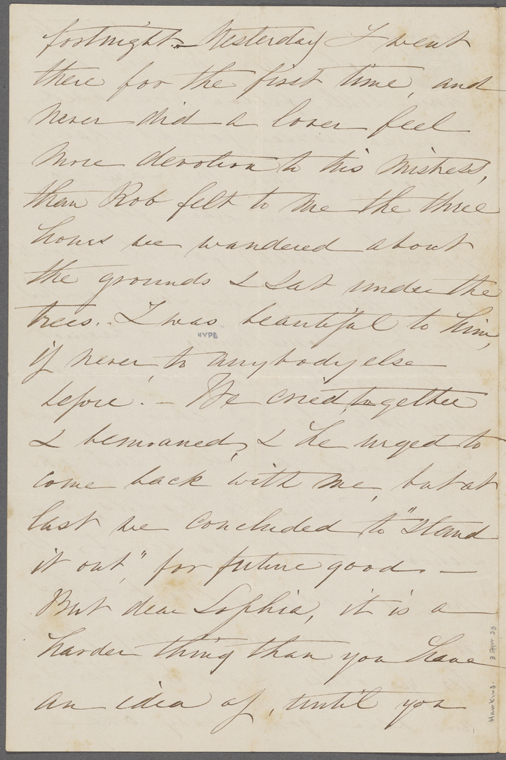 fortnight. – Yesterday I went
there for the first time, and
never did a lover feel
more devotion to his mistress,
than Rob felt to me the three
hours we wandered about
the grounds & sat under the
trees. I was beautiful to him,
HYDE
if never to anybody else
before. – We cried together
& bemoaned, & he urged to
come back with me, but at
last we concluded to "stand
it out," for future good. –
But dear Sophia, it is a
harder thing than you have
an idea of, until you
Hawkins.